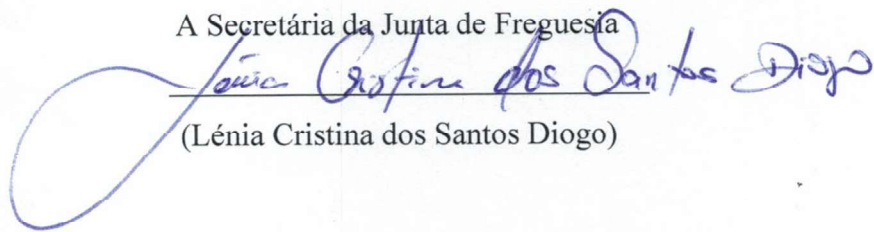 A Secretária da Junta de Freguesia
Lénia Cristina dos Santos Diogo
(Lénia Cristina dos Santos Diogo)